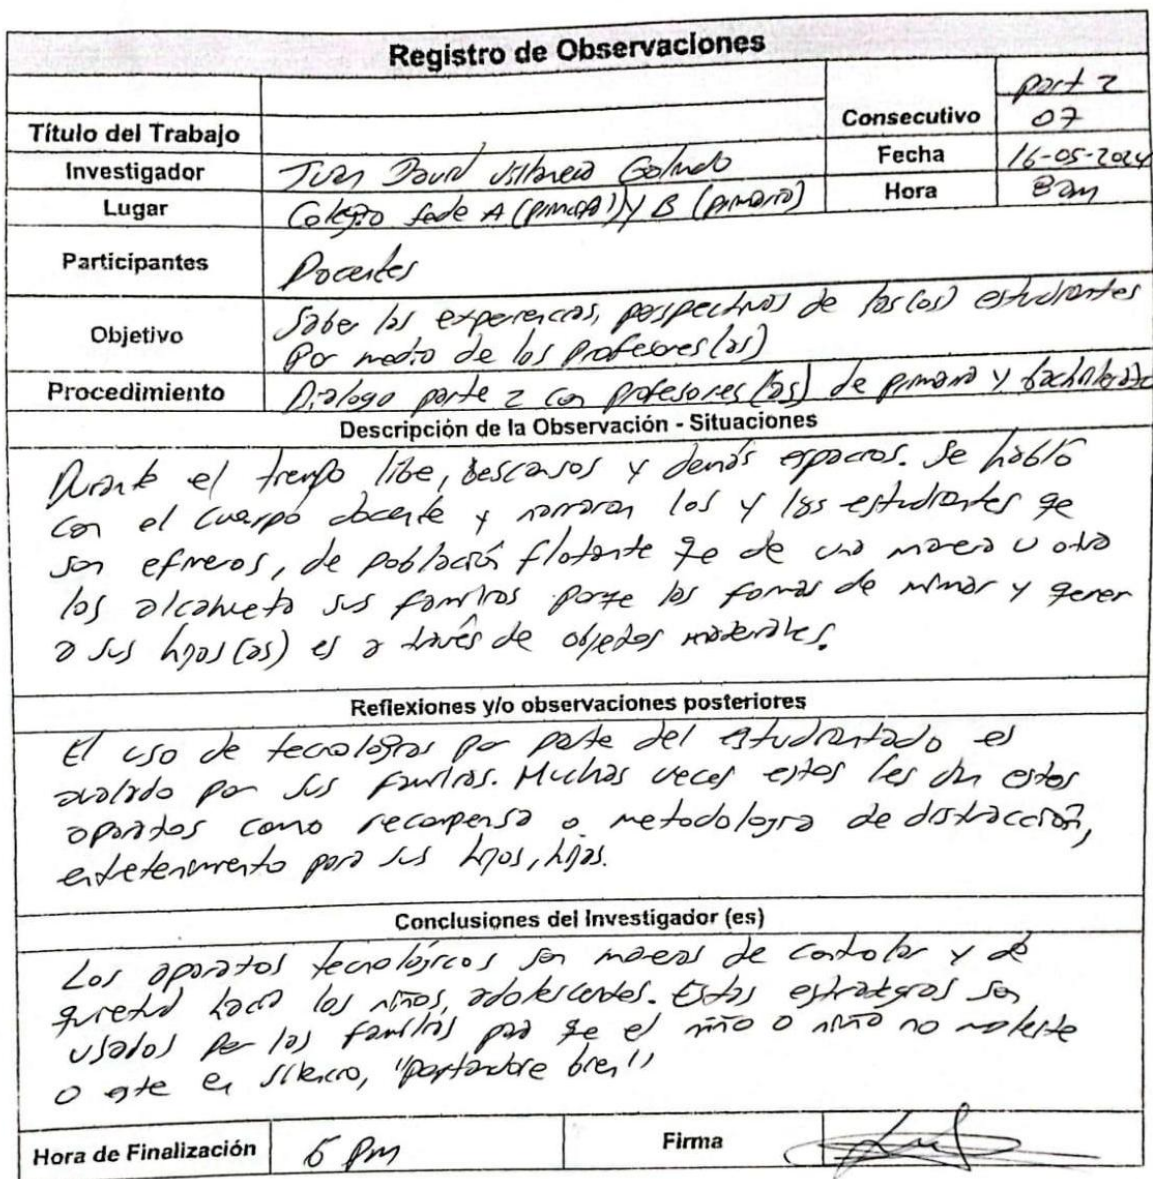 Registro de Observaciones
part 2
Título del Trabajo
Consecutivo 07
Investigador Juan David Villaneda Galindo
Fecha 16-05-2024
Lugar Colegio Sede A (principal) y B (primaria)
Hora 8am
Participantes Docentes
Objetivo Saber las experiencias, perspectivas de las(os) estudiantes
Por medio de los profesores(as)
Procedimiento Dialogo parte 2 con profesores(as) de primaria y bachillerato
Descripción de la Observación - Situaciones
Durante el tiempo libe, descansos y demás espacios. Se habló
con el cuerpo docente y narraron los y las estudiantes qe
son efimeros, de población flotante qe de una manera u otra
los alcahueta sus familias porqe las formas de mimar y qerer
a sus hijos(as) es a través de objetos materiales.
Reflexiones y/o observaciones posteriores
El uso de tecnologias por parte del estudiantado es
avalado por sus familias. Muchas veces estos les dan estos
aparatos como recompensa o metodologia de distracción,
entretenimiento para sus hijos, hijas.
Conclusiones del Investigador (es)
Los aparatos tecnológicos son maneras de controlar y de
quietud hacia los niños, adolescentes. Estas estrategias son
usados por las familias para qe el niño o niña no moleste
o este en silencio, "portandose bien"
Hora de Finalización 5 pm
Firma